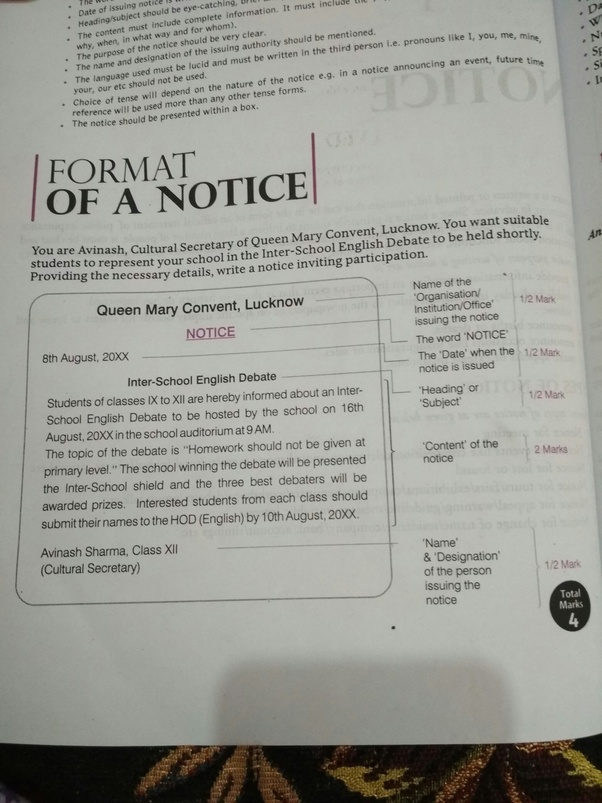 Date of issuing notice is
Heading/subject should be eye-catching,
The content must include complete information. It must include the
why, when, in what way and for whom).
The purpose of the notice should be very clear.
The name and designation of the issuing authority should be mentioned.
The language used must be lucid and must be written in the third person i.e. pronouns like I, you, me, mine,
your, our etc should not be used.
Choice of tense will depend on the nature of the notice e.g. in a notice announcing an event, future time
reference will be used more than any other tense forms.
The notice should be presented within a box.
FORMAT
OF A NOTICE
You are Avinash, Cultural Secretary of Queen Mary Convent, Lucknow. You want suitable
students to represent your school in the Inter-School English Debate to be held shortly.
Providing the necessary details, write a notice inviting participation.
Queen Mary Convent, Lucknow
NOTICE
8th August, 20XX
Inter-School English Debate
Students of classes IX to XII are hereby informed about an Inter-
School English Debate to be hosted by the school on 16th
August, 20XX in the school auditorium at 9 AM.
The topic of the debate is "Homework should not be given at
primary level." The school winning the debate will be presented
the Inter-School shield and the three best debaters will be
awarded prizes. Interested students from each class should
submit their names to the HOD (English) by 10th August, 20XX.
Avinash Sharma, Class XII
(Cultural Secretary)
Name of the
'Organisation/
Institution/Office'
issuing the notice
1/2 Mark
The word 'NOTICE'
The 'Date' when the
notice is issued
1/2 Mark
'Heading' or
'Subject'
1/2 Mark
'Content' of the
notice
2 Marks
'Name'
& 'Designation'
of the person
issuing the
notice
1/2 Mark
Total
Marks
4